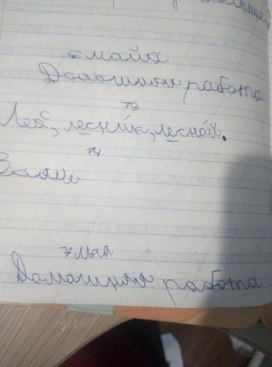 6 майя
Домашняя работа
73
Лес, лесник, лесной.
74
7 мая
Домашняя работа